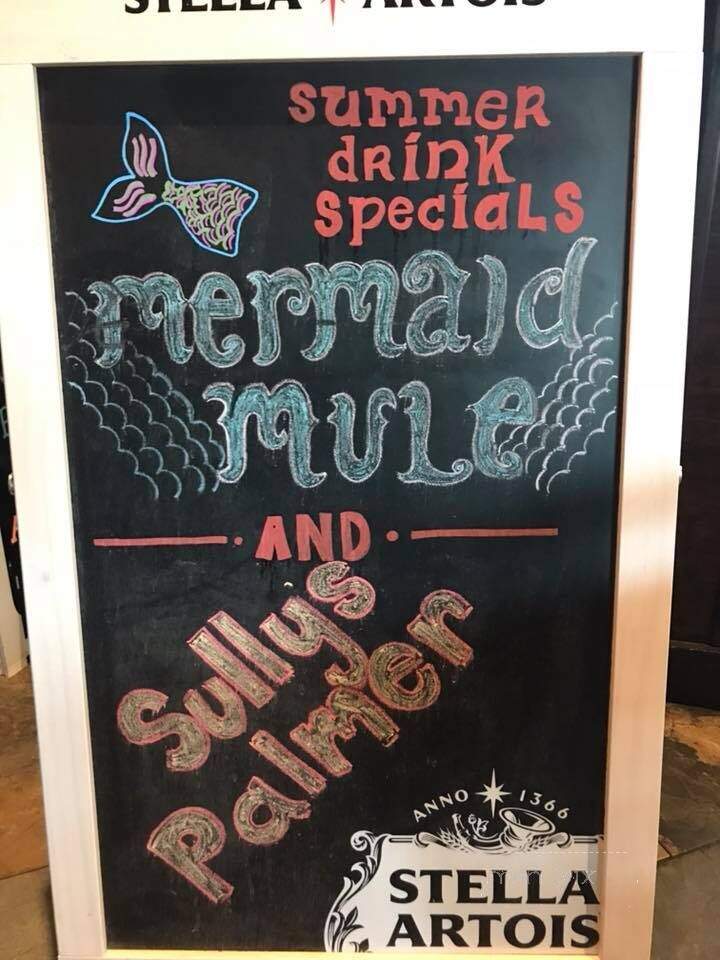 STELLA ARTOIS
SUMMER
DRINK
SPECIALS
mermaid
mule
AND
Sullys
Palmer
ANNO 1366
STELLA
ARTOIS